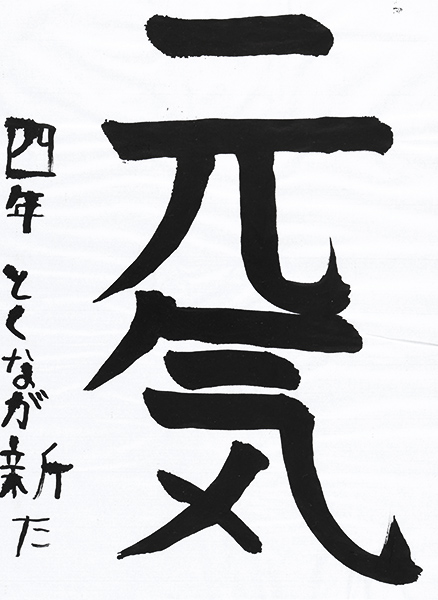 元気
四年 とくなが新た